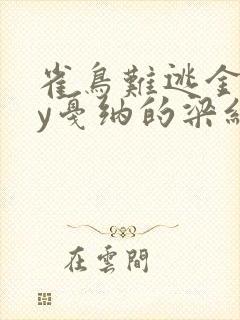 雀鳥難逃金
y戛纳的梁
在雲間